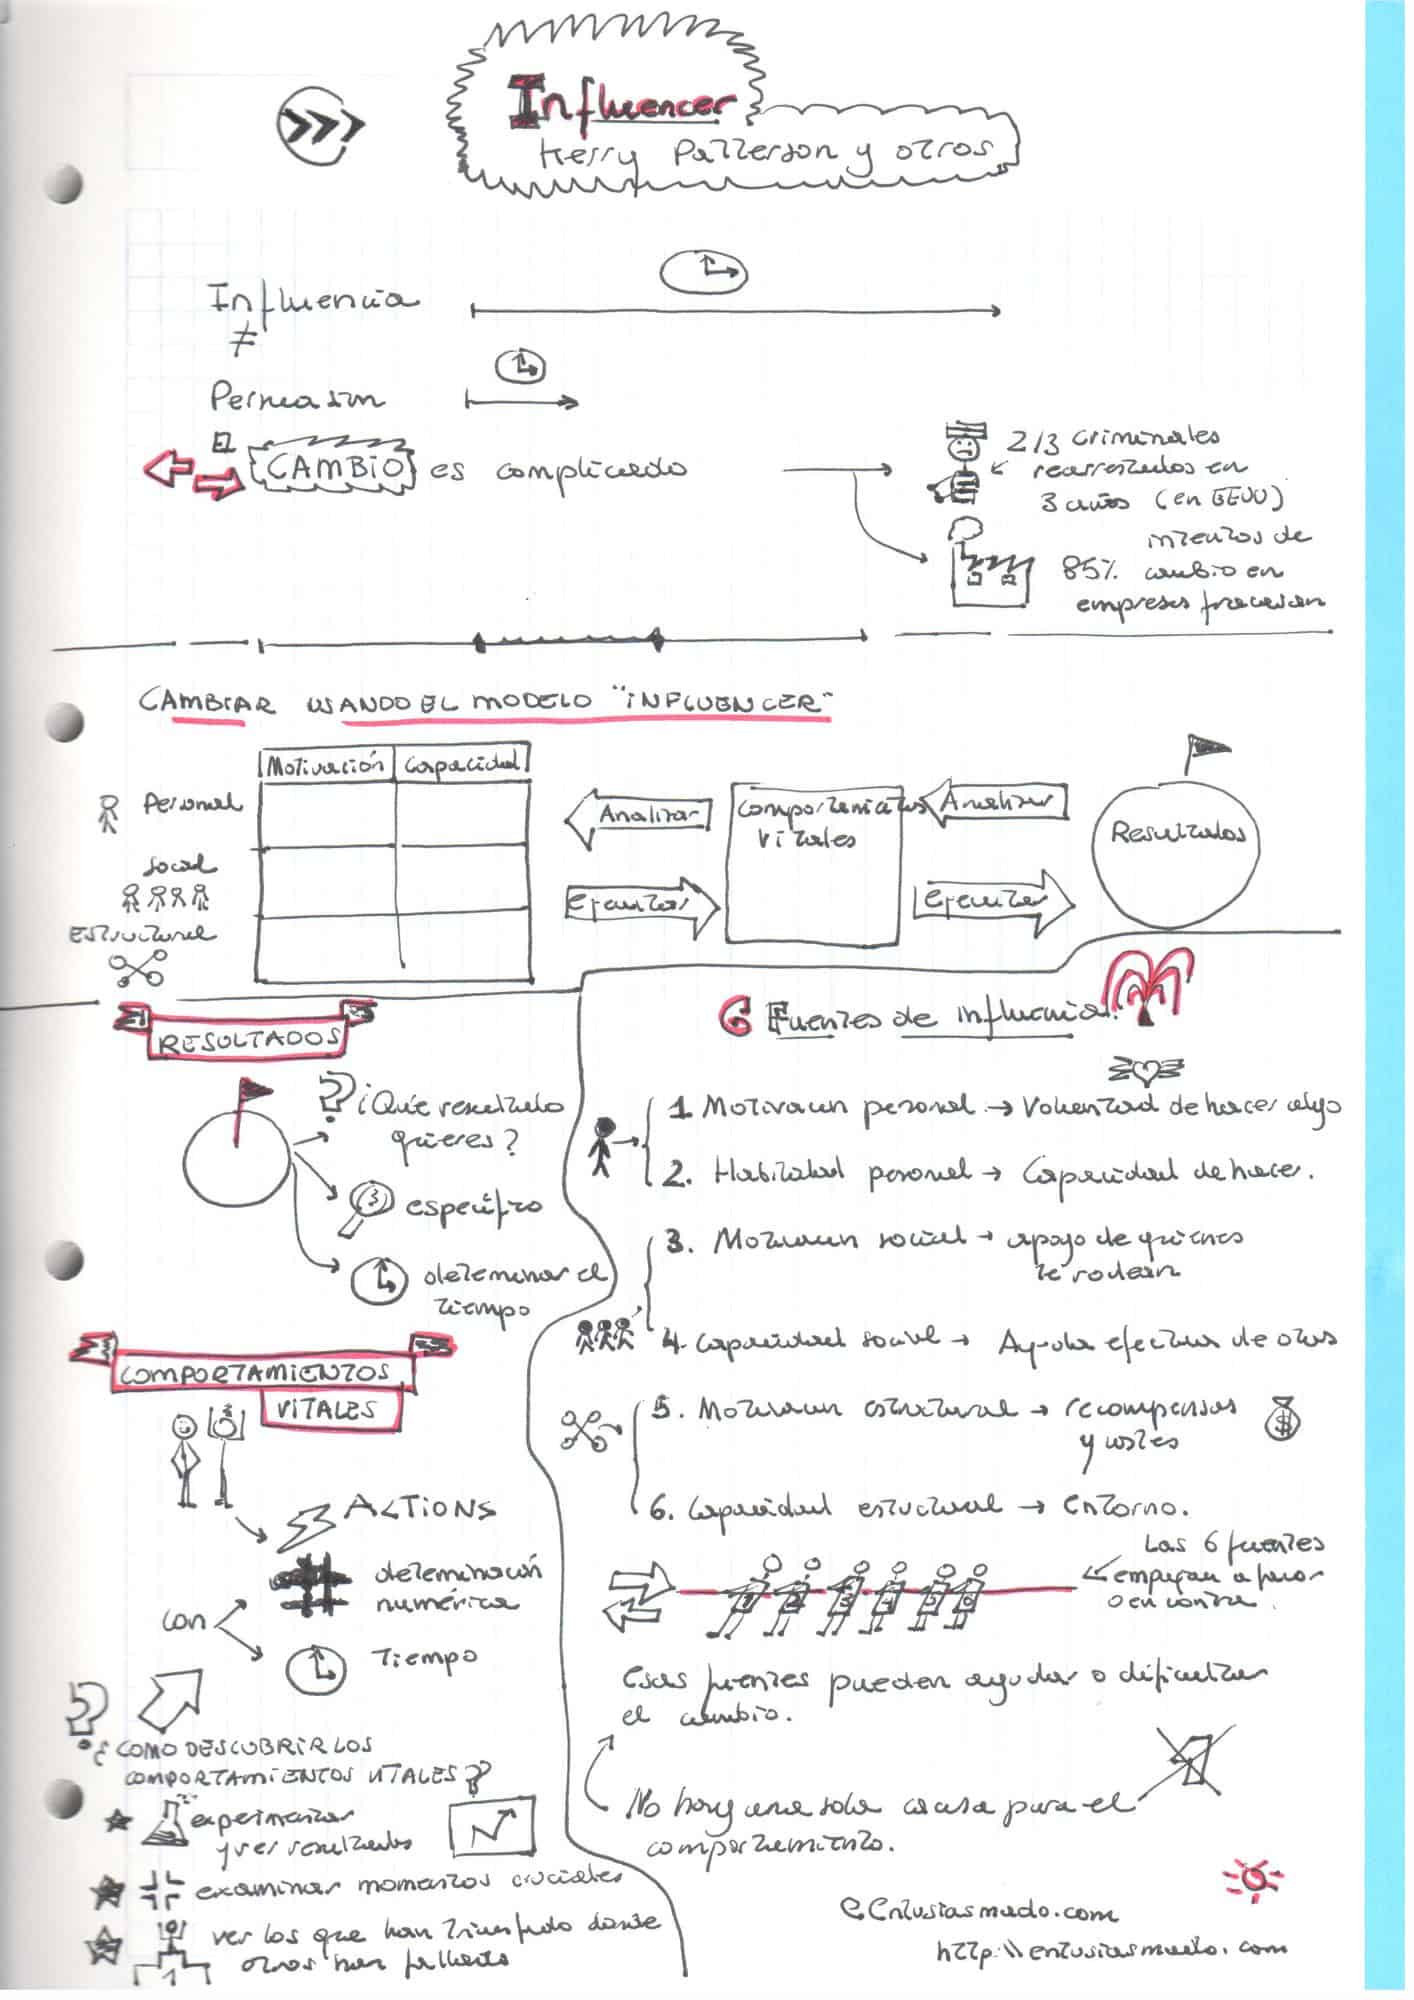 Influencer
Kerry Patterson y otros
Influencia
≠
Persuasion
El
CAMBIO es complicado
2/3 criminales
rearrestados en
3 años (en EEUU)
intentos de
85% cambio en
empresas fracasan
CAMBIAR USANDO EL MODELO "INFLUENCER"
Motivación Capacidad
Personal
Social
Estructural
Analizar
Ejecutar
Comportamientos
vitales
Analizar
Ejecutar
Resultados
RESULTADOS
? ¿Qué resultado
quieres?
específico
determinar el
tiempo
COMPORTAMIENTOS
VITALES
ACTIONS
con
# determinación
numérica
Tiempo
?
¿COMO DESCUBRIR LOS
COMPORTAMIENTOS VITALES?
experimentar
y ver resultados
examinar momentos cruciales
ver los que han triunfado donde
otros han fallado
1
6 Fuentes de influencia.
1 Motivacion personal → Voluntad de hacer algo
2. Habilidad personal → Capacidad de hacer.
3. Motivacion social → apoyo de quienes
te rodean
4. Capacidad social → Ayuda efectiva de otros
5. Motivacion estructural → recompensas
y costes
$
6. Capacidad estructural → Entorno.
Las 6 fuentes
empujan a favor
o en contra.
1 2 3 4 5 6
Esas fuentes pueden ayudar o dificultar
el cambio.
No hay una sola causa para el
comportamiento.
@Entusiasmado.com
http://entusiasmado.com